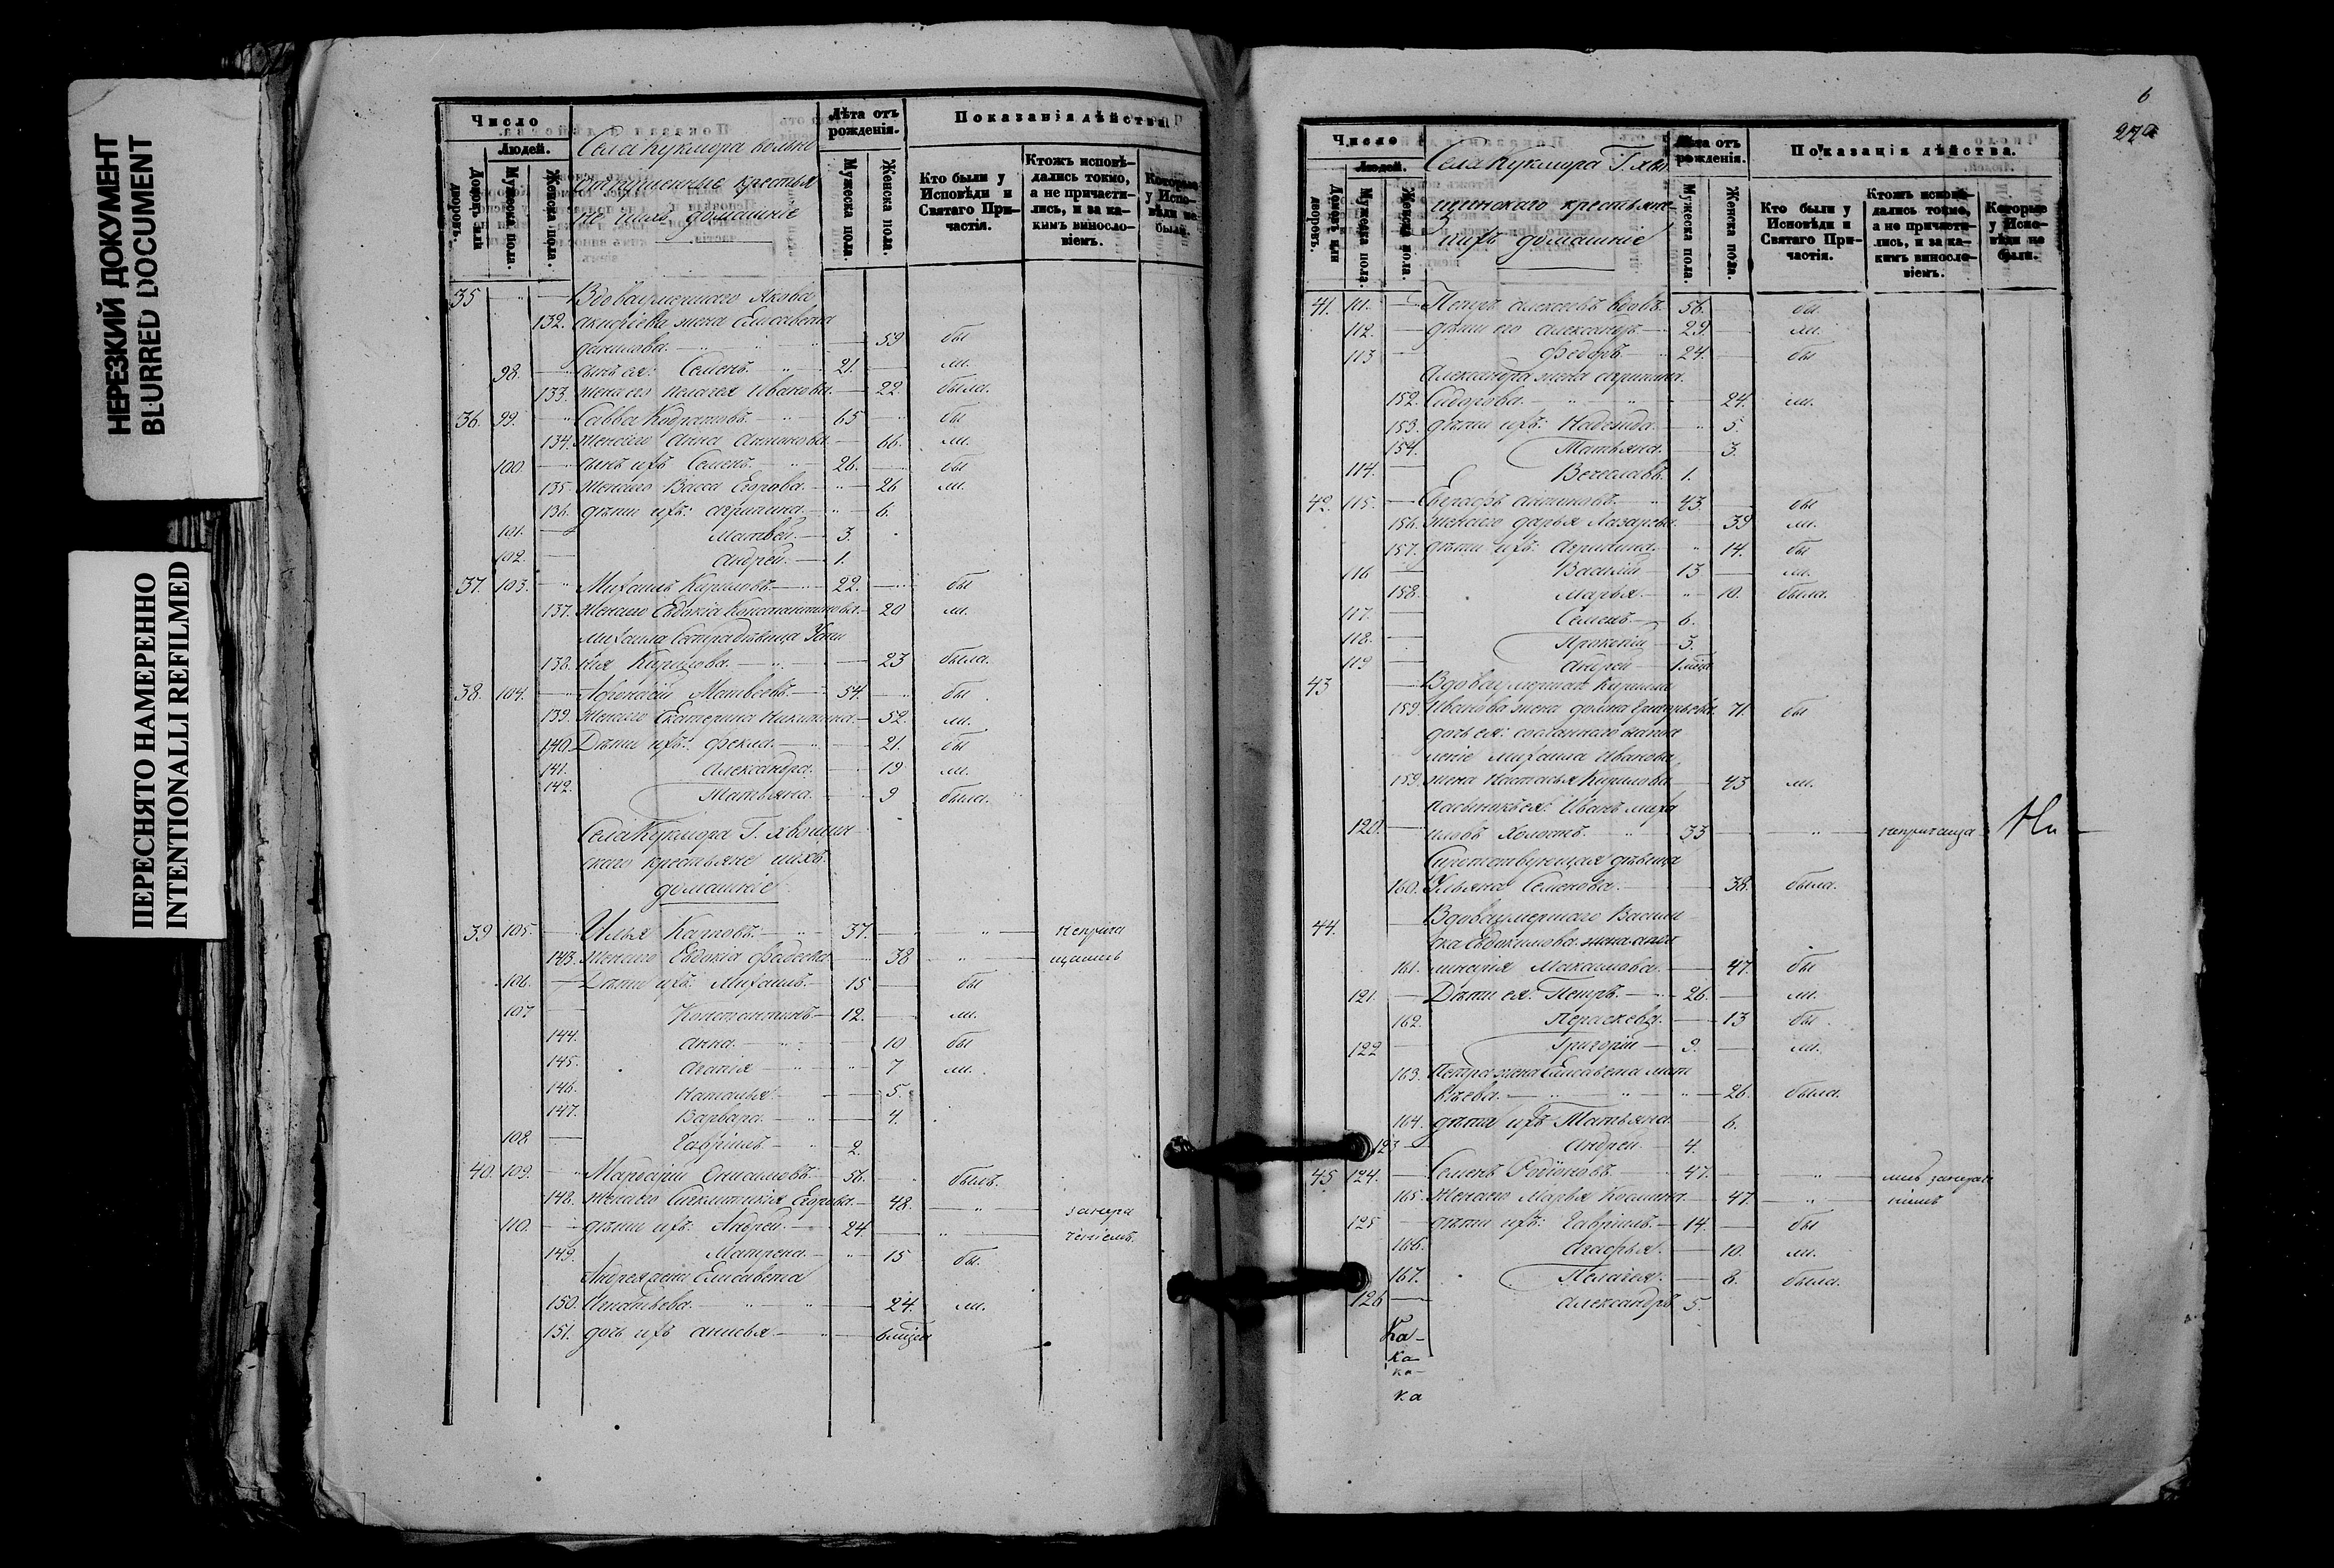 НЕРЕЗКИЙ ДОКУМЕНТ
BLURRED DOCUMENT
ПЕРЕСНЯТО НАМЕРЕННО
INTENTIONALLI REFILMED
Число
Людей.
Домовъ или дворовъ.
Мужеска пола.
Женска пола.
Села Кукмора вольно
отпущенные крестья
не ихъ домашніе
Лѣта отъ рожденія.
Мужеска пола
Женска пола.
Показанія дѣйства
Кто были у Исповѣди и Святаго При-частія.
Ктожъ исповѣ-дались токмо, а не причасти-лись, и за ка-кимъ виносло-віемъ.
Которые у Испо-вѣди не были.
35 Вдова умершаго Якова
132. жена Елисавета
Данилова. 59 бы
98. сынъ ея: Семенъ. 21. ли.
133. жена его Пелагея Иванова. 22. была.
36. 99. Савва Кодратовъ. 65 бы
134. жена его Анна Антонова. 66. ли.
100. сынъ ихъ Семенъ. 26. бы
135. жена его Васса Егорова. 26 ли.
136. дѣти ихъ: Агрипина. 6.
101. Матвей. 3.
102. Андрей. 1.
37. 103. Михаилъ Кириловъ. 22. бы
137. жена его Евдокія Константинова. 20 ли.
Михаила сестра дѣвица Усти
138. нія Кирилова. 23 была.
38. 104. Афонасій Матвеевъ. 54. бы
139. жена его Екатерина Никитина. 52. ли.
140. Дѣти ихъ: Фекла. 21. бы
141. Александра. 19 ли.
142. Татьяна. 9 была.
Села Кукмора Г. Хвощин
скаго крестьяне ихъ
домашніе
39 105. Илья Карповъ. 37. неприча
143. жена его Евдокія Фадеева 38 щались
106. Дѣти ихъ: Михаилъ. 15 бы
107 Константинъ 12. ли.
144. Анна. 10 бы
145. Агапія 7 ли.
146. Наталья 5.
147. Варвара. 4.
108 Гавріилъ 2.
40. 109. Мардарій Онисимовъ. 56. былъ.
148. жена его Синклитикія Егорова. 48. занера
110. дѣти ихъ: Андрей. 24. ченіемъ.
149. Матрена. 15 бы.
Андрея жена Елисавета
150. Игнатьева. 24. ли.
151. дочь ихъ Анисья 6 мѣся
6
279
Число
Людей.
Домовъ или дворовъ.
Мужеска пола.
Женска пола.
Села Кукмора Г. Хво
щинскаго крестьяне
ихъ домашніе
Лѣта отъ рожденія.
Мужеска пола
Женска пола.
Показанія дѣйства.
Кто были у Исповѣди и Святаго При-частія.
Ктожъ исповѣ-дались токмо, а не причасти-лись, и за ка-кимъ виносло-віемъ.
Которые у Испо-вѣди не были.
41. 111. Петръ Алексеевъ вдовъ. 56. бы
112. дѣти его Александръ 29. ли.
113 Федоръ 24. бы
Александра жена Агрипина
152. Сидорова. 24. ли.
153. дѣти ихъ: Надежда. 5.
154. Татьяна. 3.
114. Вечеславъ. 1.
42. 115. 43. бы
156. жена его Дарья Лазарева. 39 ли.
157. дѣти ихъ: Агрипина. 14. бы
116 Василій 13 ли.
158. Марья. 10. была.
117. Семенъ 6.
118. Прокопій 3.
119 Андрей 1 мѣся
43 Вдова умершаго Кирила
159. Иванова жена Домна Григорьева. 71. бы
дочь ея: сосланнаго на посе
леніе Михаила Иванова
159. жена Настасья Кирилова 43 ли.
пасынокъ ея: Иванъ Миха
120. иловъ Холостъ. 33 непричаща Ни
Сиротствующая дѣвица
160. Ульяна Семенова. 38. была.
44. Вдова умершаго Васи
Евдокимова жена
161. Максимова. 47. бы
121. Дѣти ея: Петръ. 26. ли.
162. Параскева. 13 бы
122 Григорій 9. ли.
163. Петра жена Елисавета Мат
вѣева. 26. была.
164. дѣти ихъ Татьяна. 6.
123 Андрей 4.
45 124. Семенъ Родіоновъ. 47.
165. жена его Марья Козмина. 47.
125 дѣти ихъ: Гавріилъ. 14. бы
166. Агафья. 10. ли.
167. Пелагея. 8. была.
126 Александръ 5.
Ка-
ка-
ка-
ка